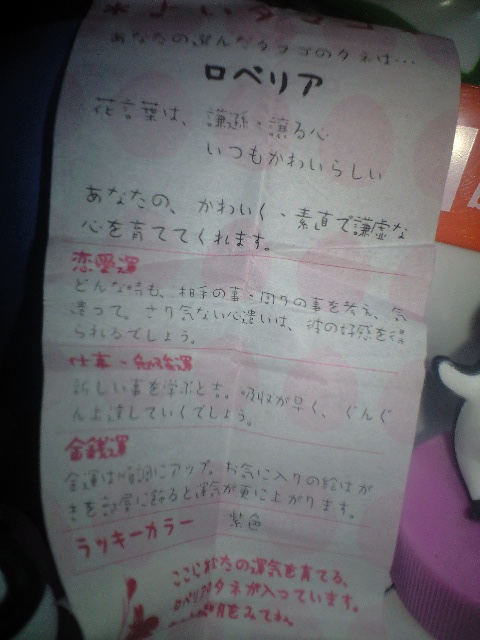 あなたの選んだタマゴのタネは…
ロベリア
花言葉は、謙遜・譲る心
いつもかわいらしい
あなたの、かわいく・素直で謙虚な
心を育ててくれます。
恋愛運
どんな時も、相手の事・周りの事を考え、気
遣って。さり気ない心遣いは、彼の好感を得
られるでしょう。
仕事・勉強運
新しい事を学ぶと吉。吸収が早く、ぐんぐ
ん上達していくでしょう。
金銭運
金運は順調にアップ。お気に入りの絵はが
きを部屋に飾ると運気が更に上がります。
ラッキーカラー 紫色
ここにあなたの運気を育てる、
ロベリアのタネが入っています。
てみてね